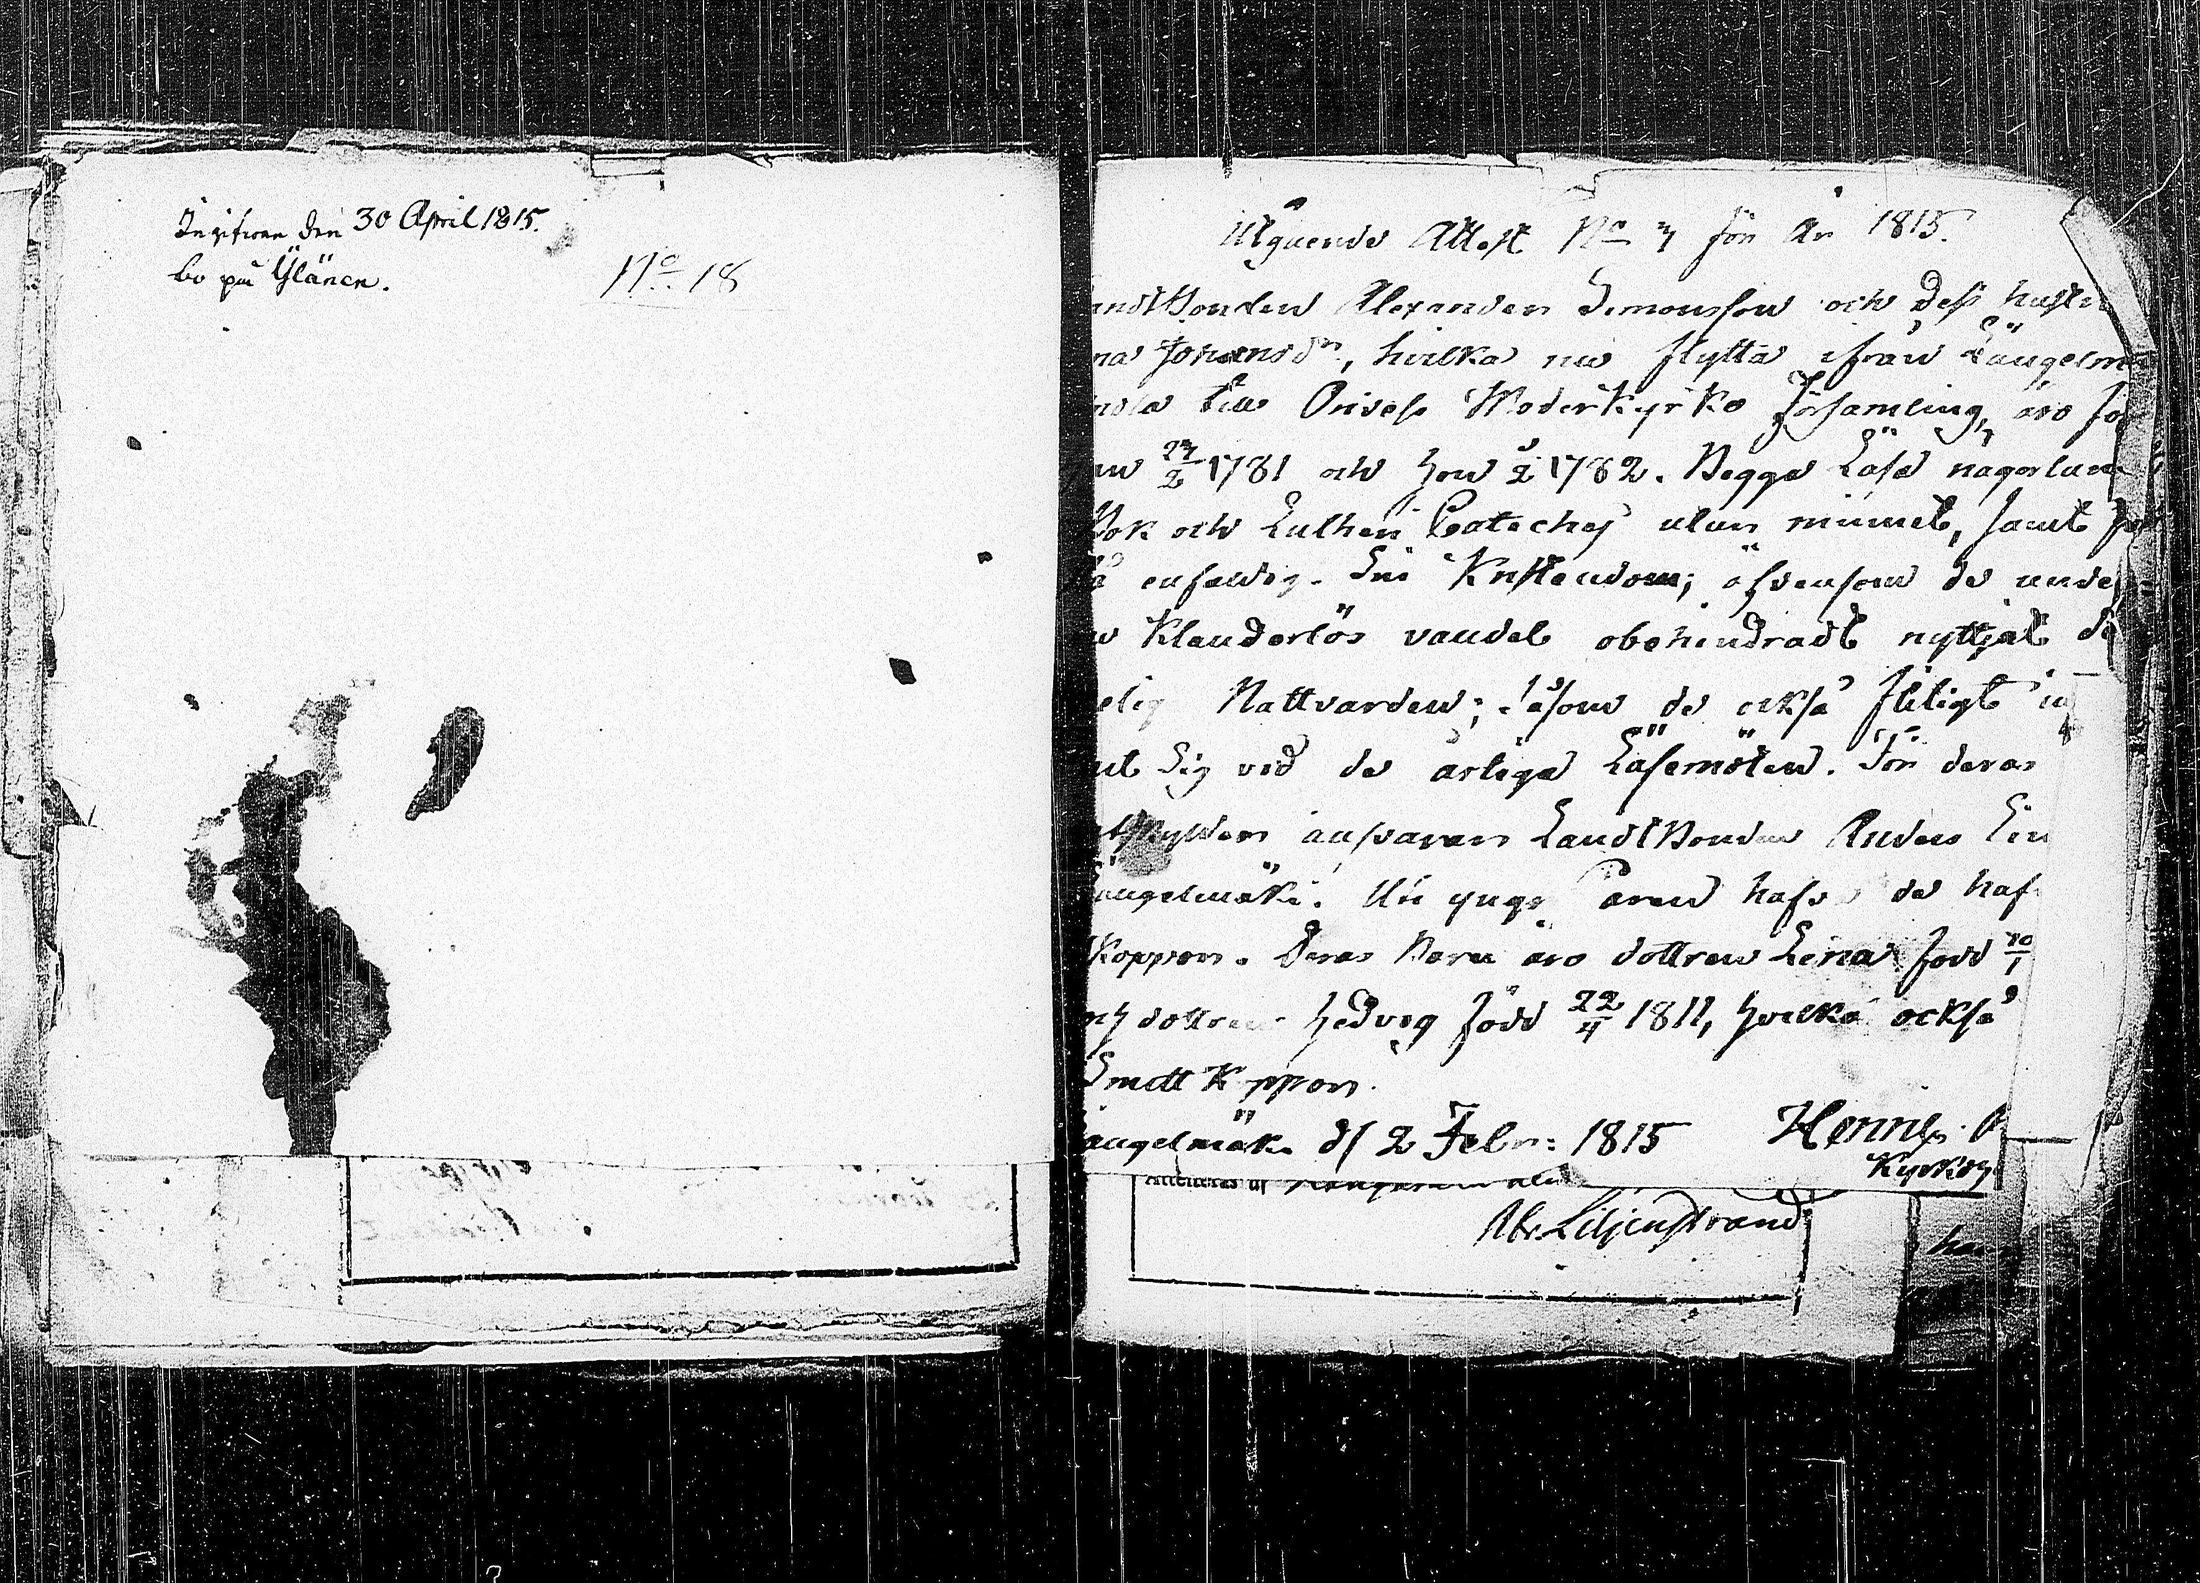 den 30 April 1815.
bo på Ylänen.
No. 18
Utgående Attest No 7 för År 1815.
andtBonden Alexander Simonsson och Dess hustru
na Johansdr, hvilka nu flytta ifrån Längelmä
till Orivesi Moderkyrko Församling, äro fö
1781 och hon 1782. Begge Läsa någorlun
Bok och Lutheri Cateches utan minnet, samt för
å enfaldig. Sin Kristendom; äfvensom de unde
Klanderlös vandel obehindradt nyttjat de
elig Nattvarden; såsom de också flitigt in
ut Sig vid de årliga Läsemöten. För deras
ansvarar LandtBonden Anders
ängelmäki. Uti yngre åren hafva de haft
Koppor. Deras Barn äro dottren Lena född 10/1
och dottren Hedvig född 22/4 1811, hvilka också
Smått Koppor.
ängelmäki d/ 2 Febr: 1815 Henric
Kyrkoh
Abr. Liljenstrand